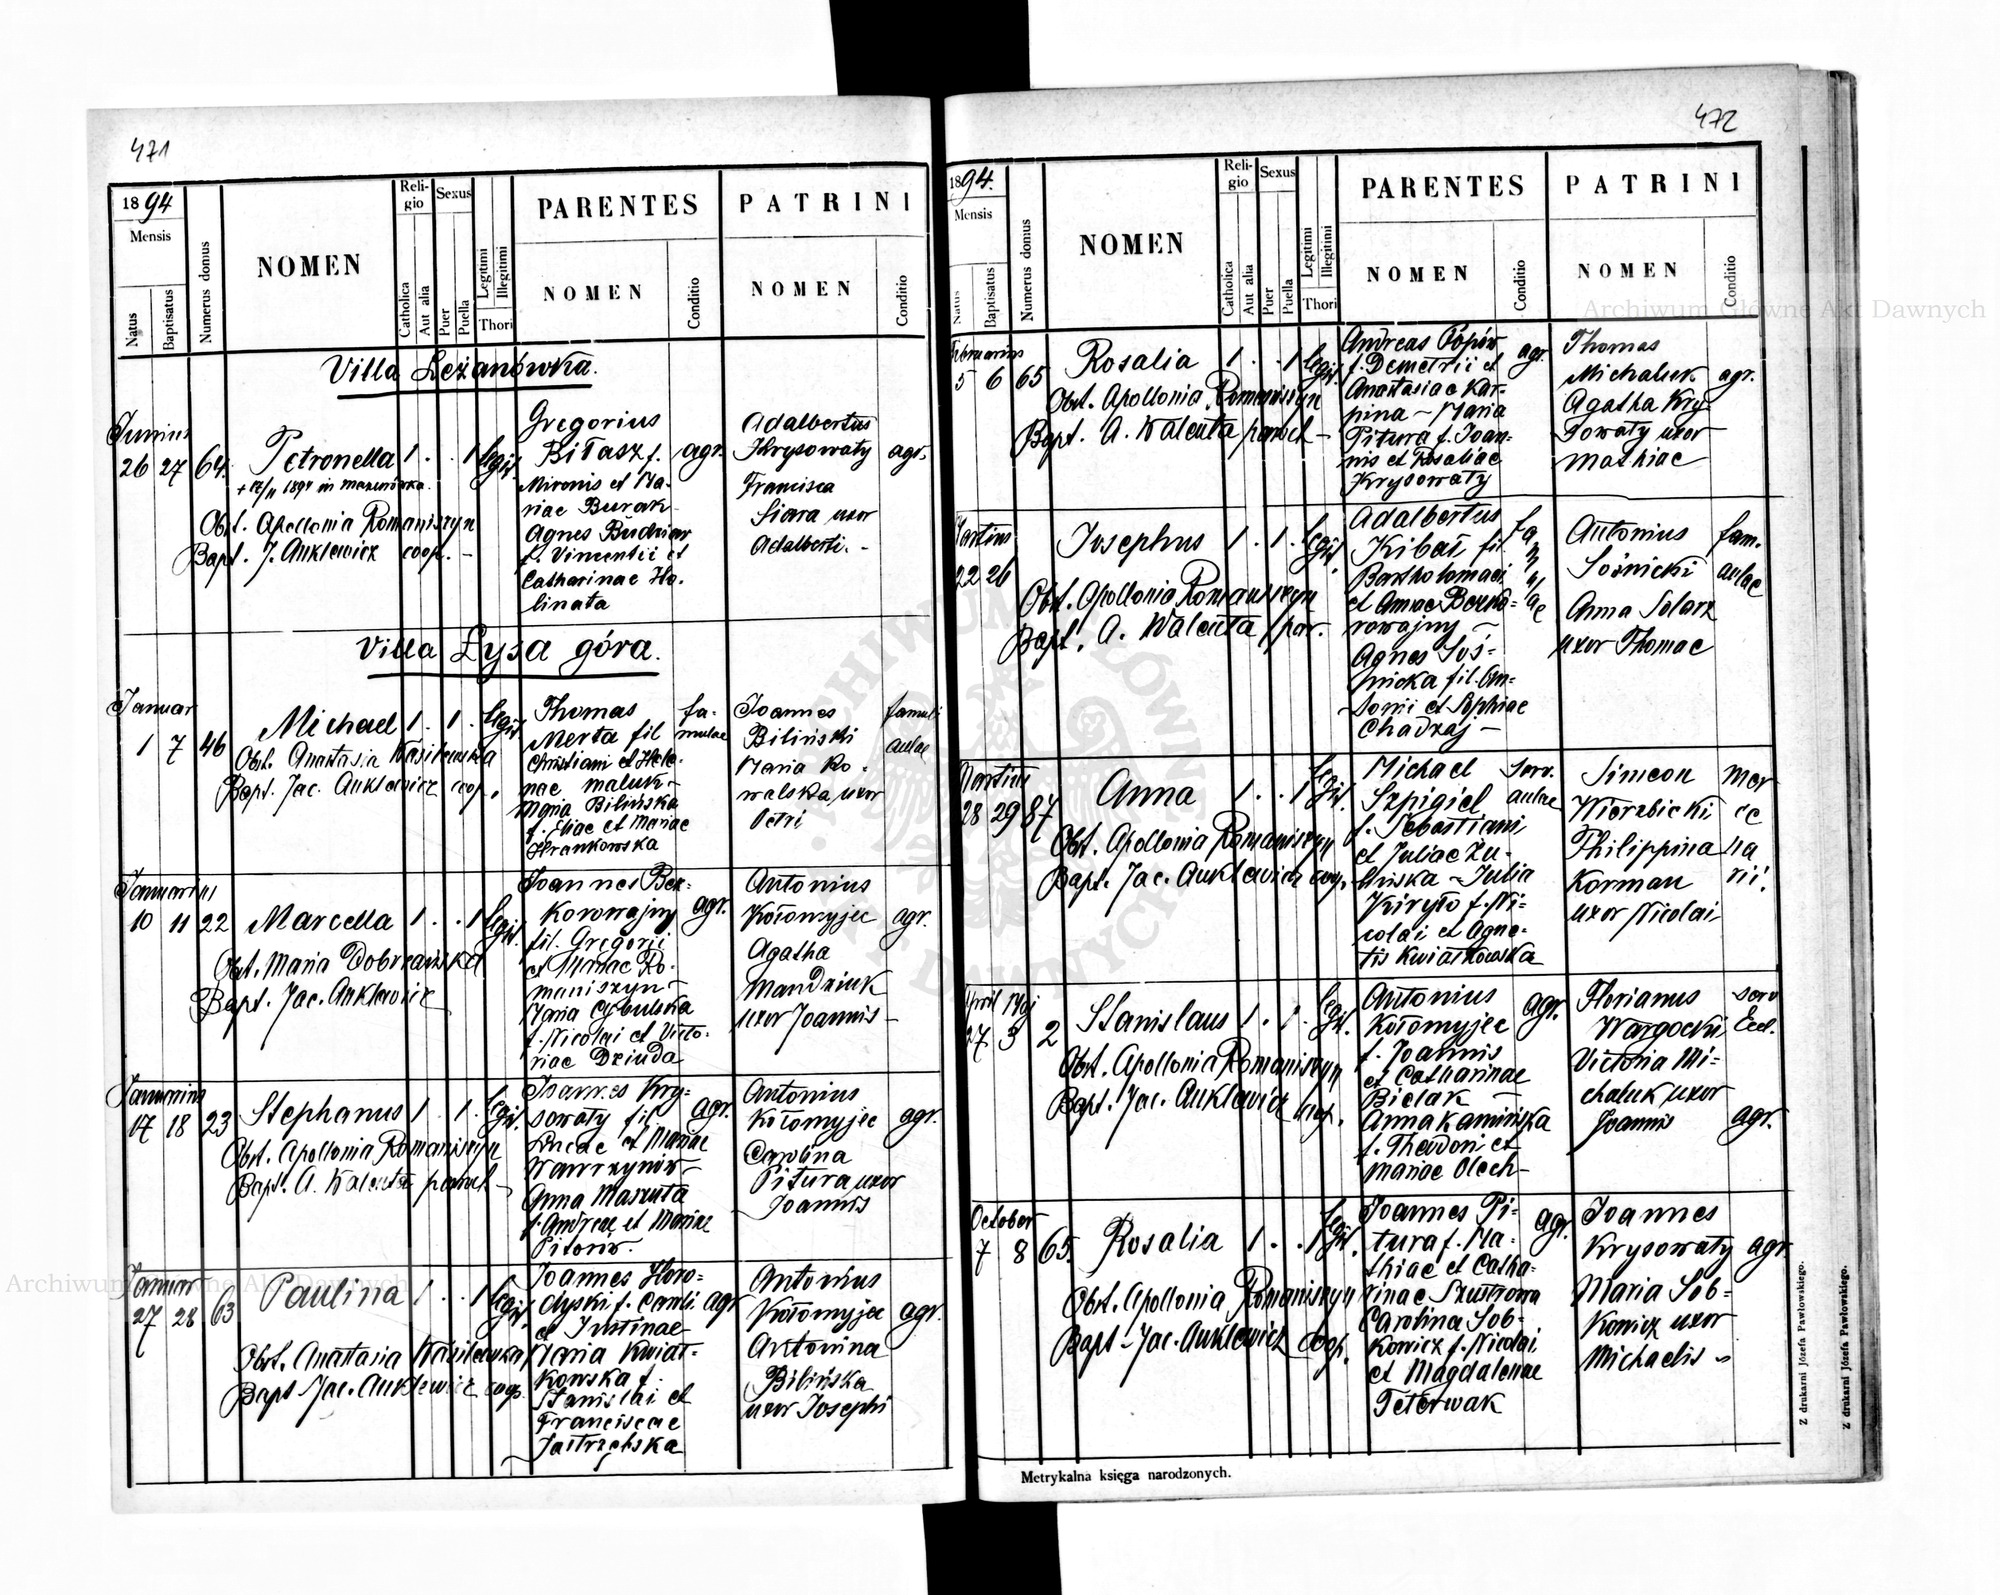 471
1894
Mensis
Natus
Baptisatus
Numerus domus
NOMEN
Religio
Catholica
Aut alia
Sexus
Puer
Puella
Legitimi
Illegitimi
Thori
PARENTES
NOMEN
Conditio
PATRINI
NOMEN
Conditio
Villa Leżanówka.
Junius
26 27 64. Petronella 1 . . 1 legit.
Obst. Apollonia Romaniszyn
Bapt. J. Auklewicz coop. –
Gregorius
Biłasz f.
Mironis et Ma-
riae Burak
Agnes
f. Vincentii et
Catharinae Ho-
linata
agr.
Adalbertus
Krysowaty
Francisca
Siara uxor
Adalberti. –
agr.
Villa Łysa góra.
Januar
1 7 46 Michael 1 . 1 . legit.
Obst. Anastasia Wasilewska
Bapt. Jac. Auklewicz coop.
Thomas
Merta fil
Christiani et Hele-
nae maluk –
Maria Bilińska
f. Eliae et Mariae
Hrankowska
fa-
mulae
Joannes
Biliński
Maria Ko-
walska uxor
Petri
famuli
aulae
Januarius
10 11 22 Marcella 1 . . 1 legit.
Obst. Maria Dobrzańska
Bapt. Jac. Auklewicz
Joannes Bez-
korowajny
fil. Gregorii
et Mariae Ro-
maniszyn –
Maria Cybulska
f. Nicolai et Victo-
riae Dziuda
agr.
Antonius
Kołomyjec
Agatha
Mandziuk
uxor Joannis –
agr.
Januarius
17 18 23 Stephanus 1 . 1 . legit.
Obst. Apollonia Romaniszyn
Bapt. A. Walenta paroch –
Joannes Kry-
sowaty fil
Lucae et Mariae
Wawrzynów –
Anna Maszuta
f. Andreae et Mariae
Pitoriw.
agr.
Antonius
Kołomyjec
Carolina
Pitura uxor
Joannis
agr.
Januar
27 28 63 Paulina 1 . . 1 legit.
Obst. Anastasia Wasilewska
Bapt Jac. Auklewicz coop.
Joannes Horo-
dyski f. Caroli
et Justinae
Maria Kwiat-
kowska f.
Stanislai et
Franciscae
Jastrzębska
agr
Antonius
Kołomyjec
Antonina
Bilińska
uxor Josephi
agr.
472
1894.
Mensis
Natus
Baptisatus
Numerus domus
NOMEN
Religio
Catholica
Aut alia
Sexus
Puer
Puella
Legitimi
Illegitimi
Thori
PARENTES
NOMEN
Conditio
PATRINI
NOMEN
Conditio
Februarius
5 6 65 Rosalia 1 . . 1 legit.
Obst. Apollonia Romaniszyn
Bapt. A. Walenta paroch –
Andreas Popów
f. Demetrii et
Anastasiae Kar-
pina – Maria
Pitura f. Joan-
nis et Rosaliae
Krysowaty
agr.
Thomas
Michaluk
Agatha Kry-
sowaty uxor
Mathiae
agr.
Martius
22 26 Josephus 1 . 1 . legit.
Obst. Apollonia Romaniszyn
Bapt. A. Walenta par.
Adalbertus
Kibał fil.
Bartholomaei
et Annae Bezko-
rowajny –
Agnes Soś-
nicka fil. An-
tonii et Sophiae
Chadzaj –
Antonius
Sośnicki
Anna Solarz
uxor Thomae
fam.
aulae
Martius
28 29 87 Anna 1 . . 1 legit.
Obst. Apollonia Romaniszyn
Bapt. Jac. Auklewicz coop.
Michael
Szpigiel
f. Sebastiani
et Juliae Zu-
lińska – Julia
Kiryło f. Ni-
colai et Agne-
tis Kwiatkowska
serv.
aulae
Simeon
Wierzbicki
Philippina
Korman
uxor Nicolai
mer
ce
na
rii.
April Maj
27 3 2 Stanislaus 1 . 1 . legit.
Obst. Apollonia Romaniszyn
Bapt. Jac. Auklewicz coop.
Antonius
Kołomyjec
f. Joannis
et Catharinae
Bielak –
Anna Kamińska
f. Theodori et
Mariae Olech –
agr.
Florianus
Wargocki
Victoria Mi-
chaluk uxor
Joannis
serv
Eccl.
agr.
October
7 8 65. Rosalia 1 . . 1 legit.
Obst. Apollonia Romaniszyn
Bapt – Jac. Auklewicz coop.
Joannes Pi-
tura f. Ma-
thiae et Catha-
rinae Szustrowa
Carolina Sob-
kowicz f. Nicolai
et Magdalenae
Teterwak
agr.
Joannes
Krysowaty
Maria Sob-
kowicz uxor
Michaelis –
agr
Metrykalna księga narodzonych.
Z drukarni Józefa Pawłowskiego.
Z drukarni Józefa Pawłowskiego.
Archiwum Główne Akt Dawnych
Archiwum Główne Akt Dawnych
ARCHIWUM GŁÓWNE AKT DAWNYCH